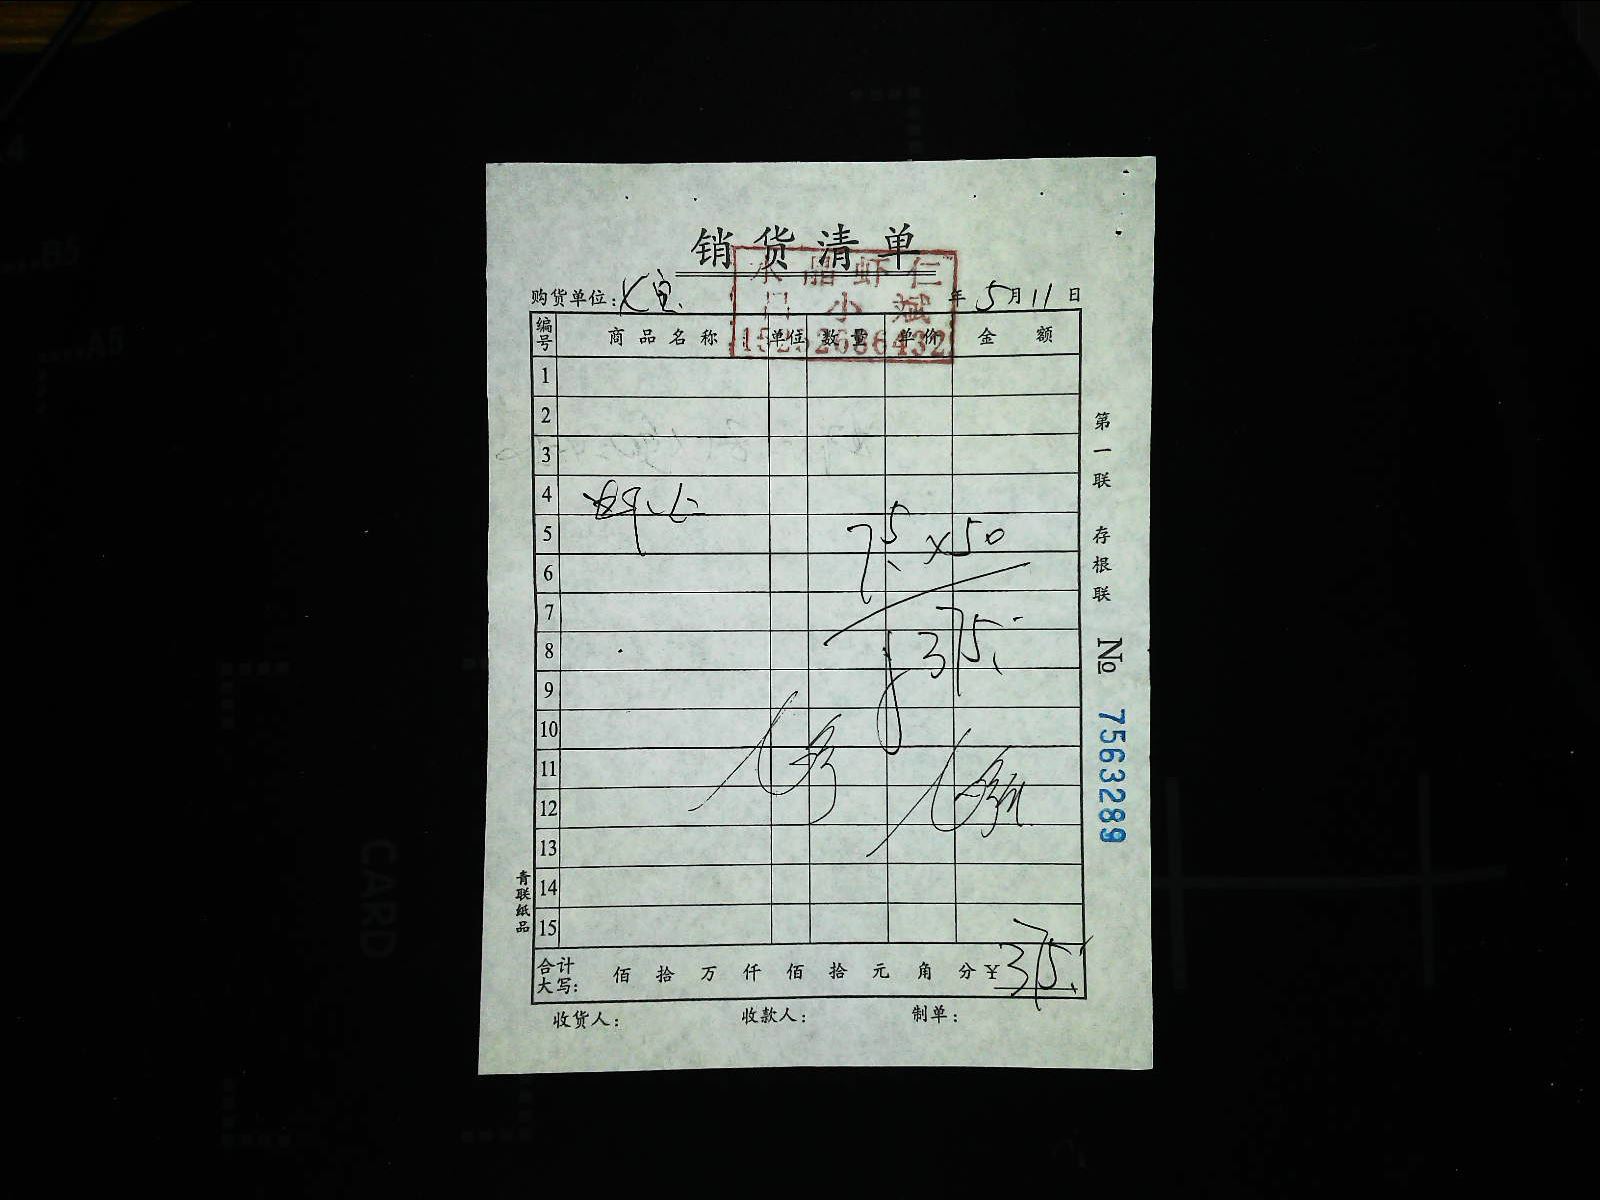 销货清单
水晶虾仁
吕小斌
15252686432
购货单位: 年 5月11日
编号 商品名称 单位 数量 单价 金额
1
2
3
4 虾仁
5 7.5 x 50
6
7
8 375.
9
10
11
12
13
14
15
合计大写: 佰 拾 万 仟 佰 拾 元 角 分 ¥375.
收货人: 收款人: 制单:
第一联 存根联 № 7563289
青联纸品
CARD
B5
A6